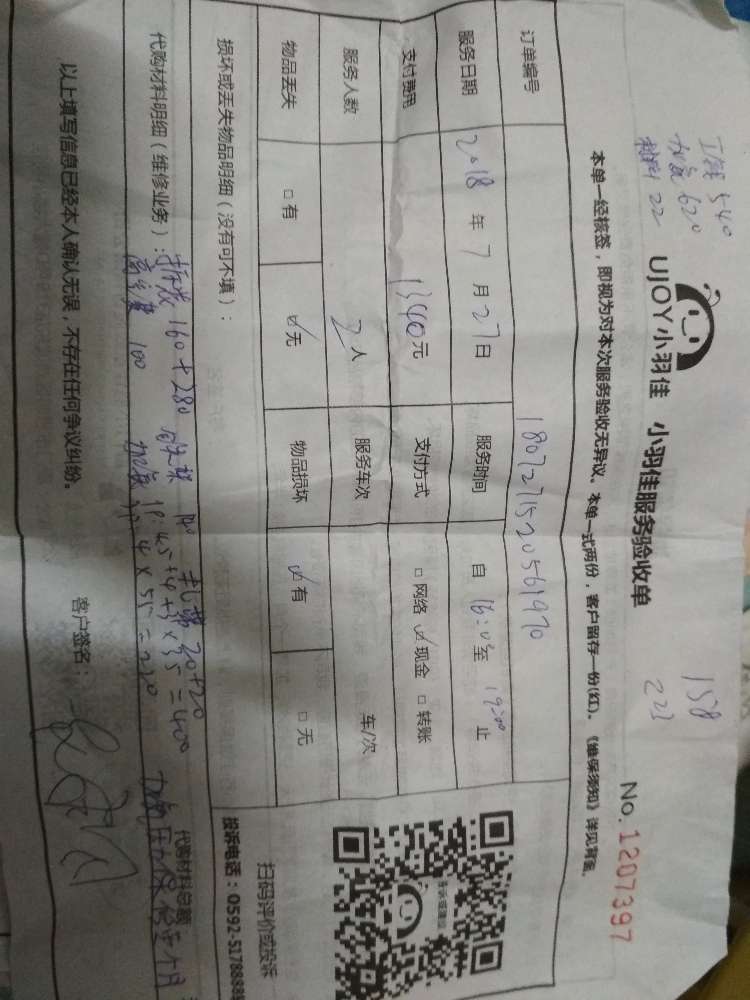 工钱 540
加氟 620
材料 22
158
223
UJOY小羽佳 小羽佳服务验收单
No.1207397
本单一经核签，即视为对本次服务验收无异议。本单一式两份，客户留存一份(红)。《维保须知》详见背面。
订单编号 180727152056 1970
服务日期 2018 年 7 月 27 日 服务时间 自 16:00 至 19:00 止
支付费用 1340元 支付方式 □网络 ☑现金 □转账
服务人数 2人 服务车次 车/次
物品丢失 □有 ☑无 物品损坏 ☑有 □无
损坏或丢失物品明细（没有可不填）：
扫码评价或投诉
投诉电话：0592-5178888
代购材料明细（维修业务）：拆装 160+280 扎带 20+20 代购材料总额
高空费 100 加氟 1P:4.5+4+3×35=400
4×55=220 加氟压力保修三个月
以上填写信息已经本人确认无误，不存在任何争议纠纷。 客户签名：